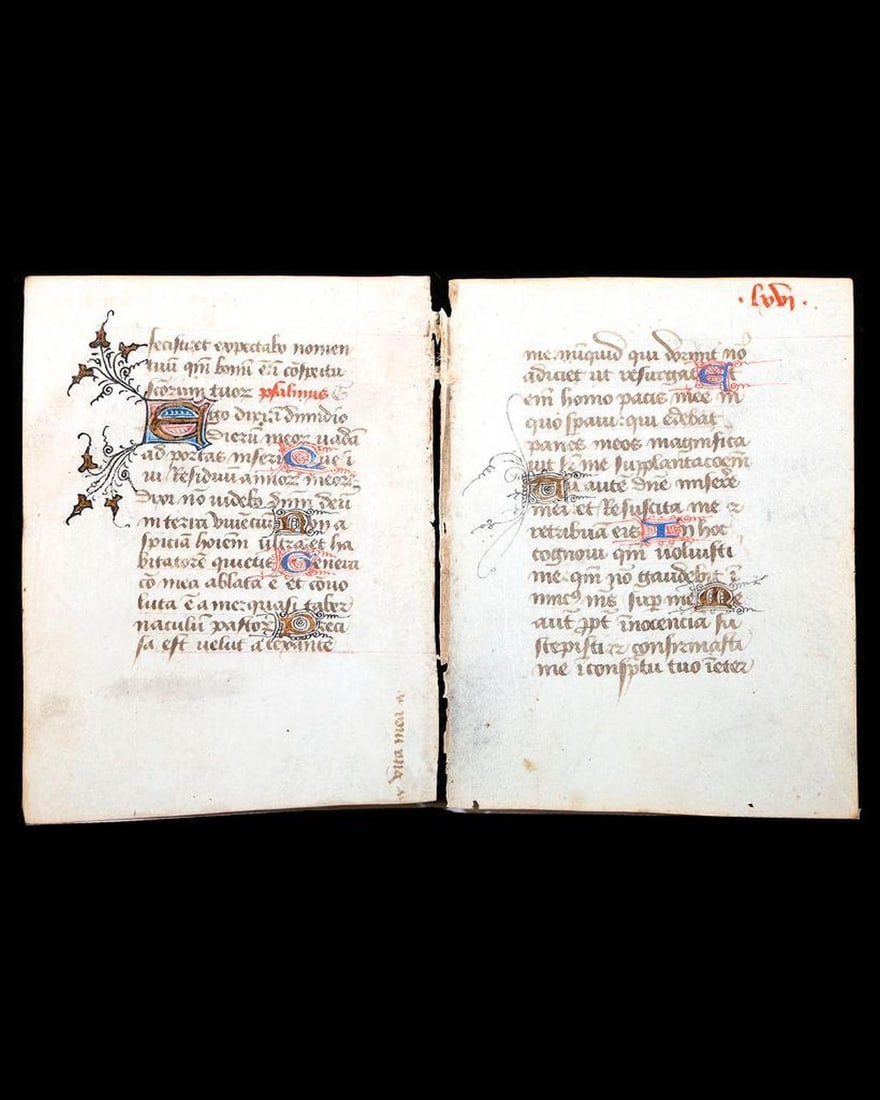 fecisti et expectabo nomen
tuū qm̄ bonū ē ī cōspectu
sc̄orum tuoꝝ psalmus
Ego dixi ī dimidio
dierū meoꝝ uadā
ad portas inferi Que ī
ui Residuum annoꝝ meoꝝ
dixi nō uidebo dnm̄ deū
in terra viuētiū Non a
spiciam hoīem ult̄ra et ha
bitatorē quietis Genera
cō mea ablata ē et cōuo
luta ē a me quasi taber
naculū pastoꝝ Preci
sa est velut a texente
vita mea
·lxvi·
me nunquid qui dormit nō
adiciet ut resurgat Et
em̄ homo pacis mee in
quo spaui qui edebat
panes meos magnifica
uit sr̄ me supplantacoēm
Tu autē dn̄e misere
mei et Resuscita me ꝛ
retribuā eis In hoc
cognoui qm̄ voluisti
me qm̄ nō gaudebit ī
micꝯ mꝰ sup̄ me Me
aut̄ ꝓpt̄ īnocencia su
scepisti ꝛ confirmasti
me ī consp̄tu tuo ī eter